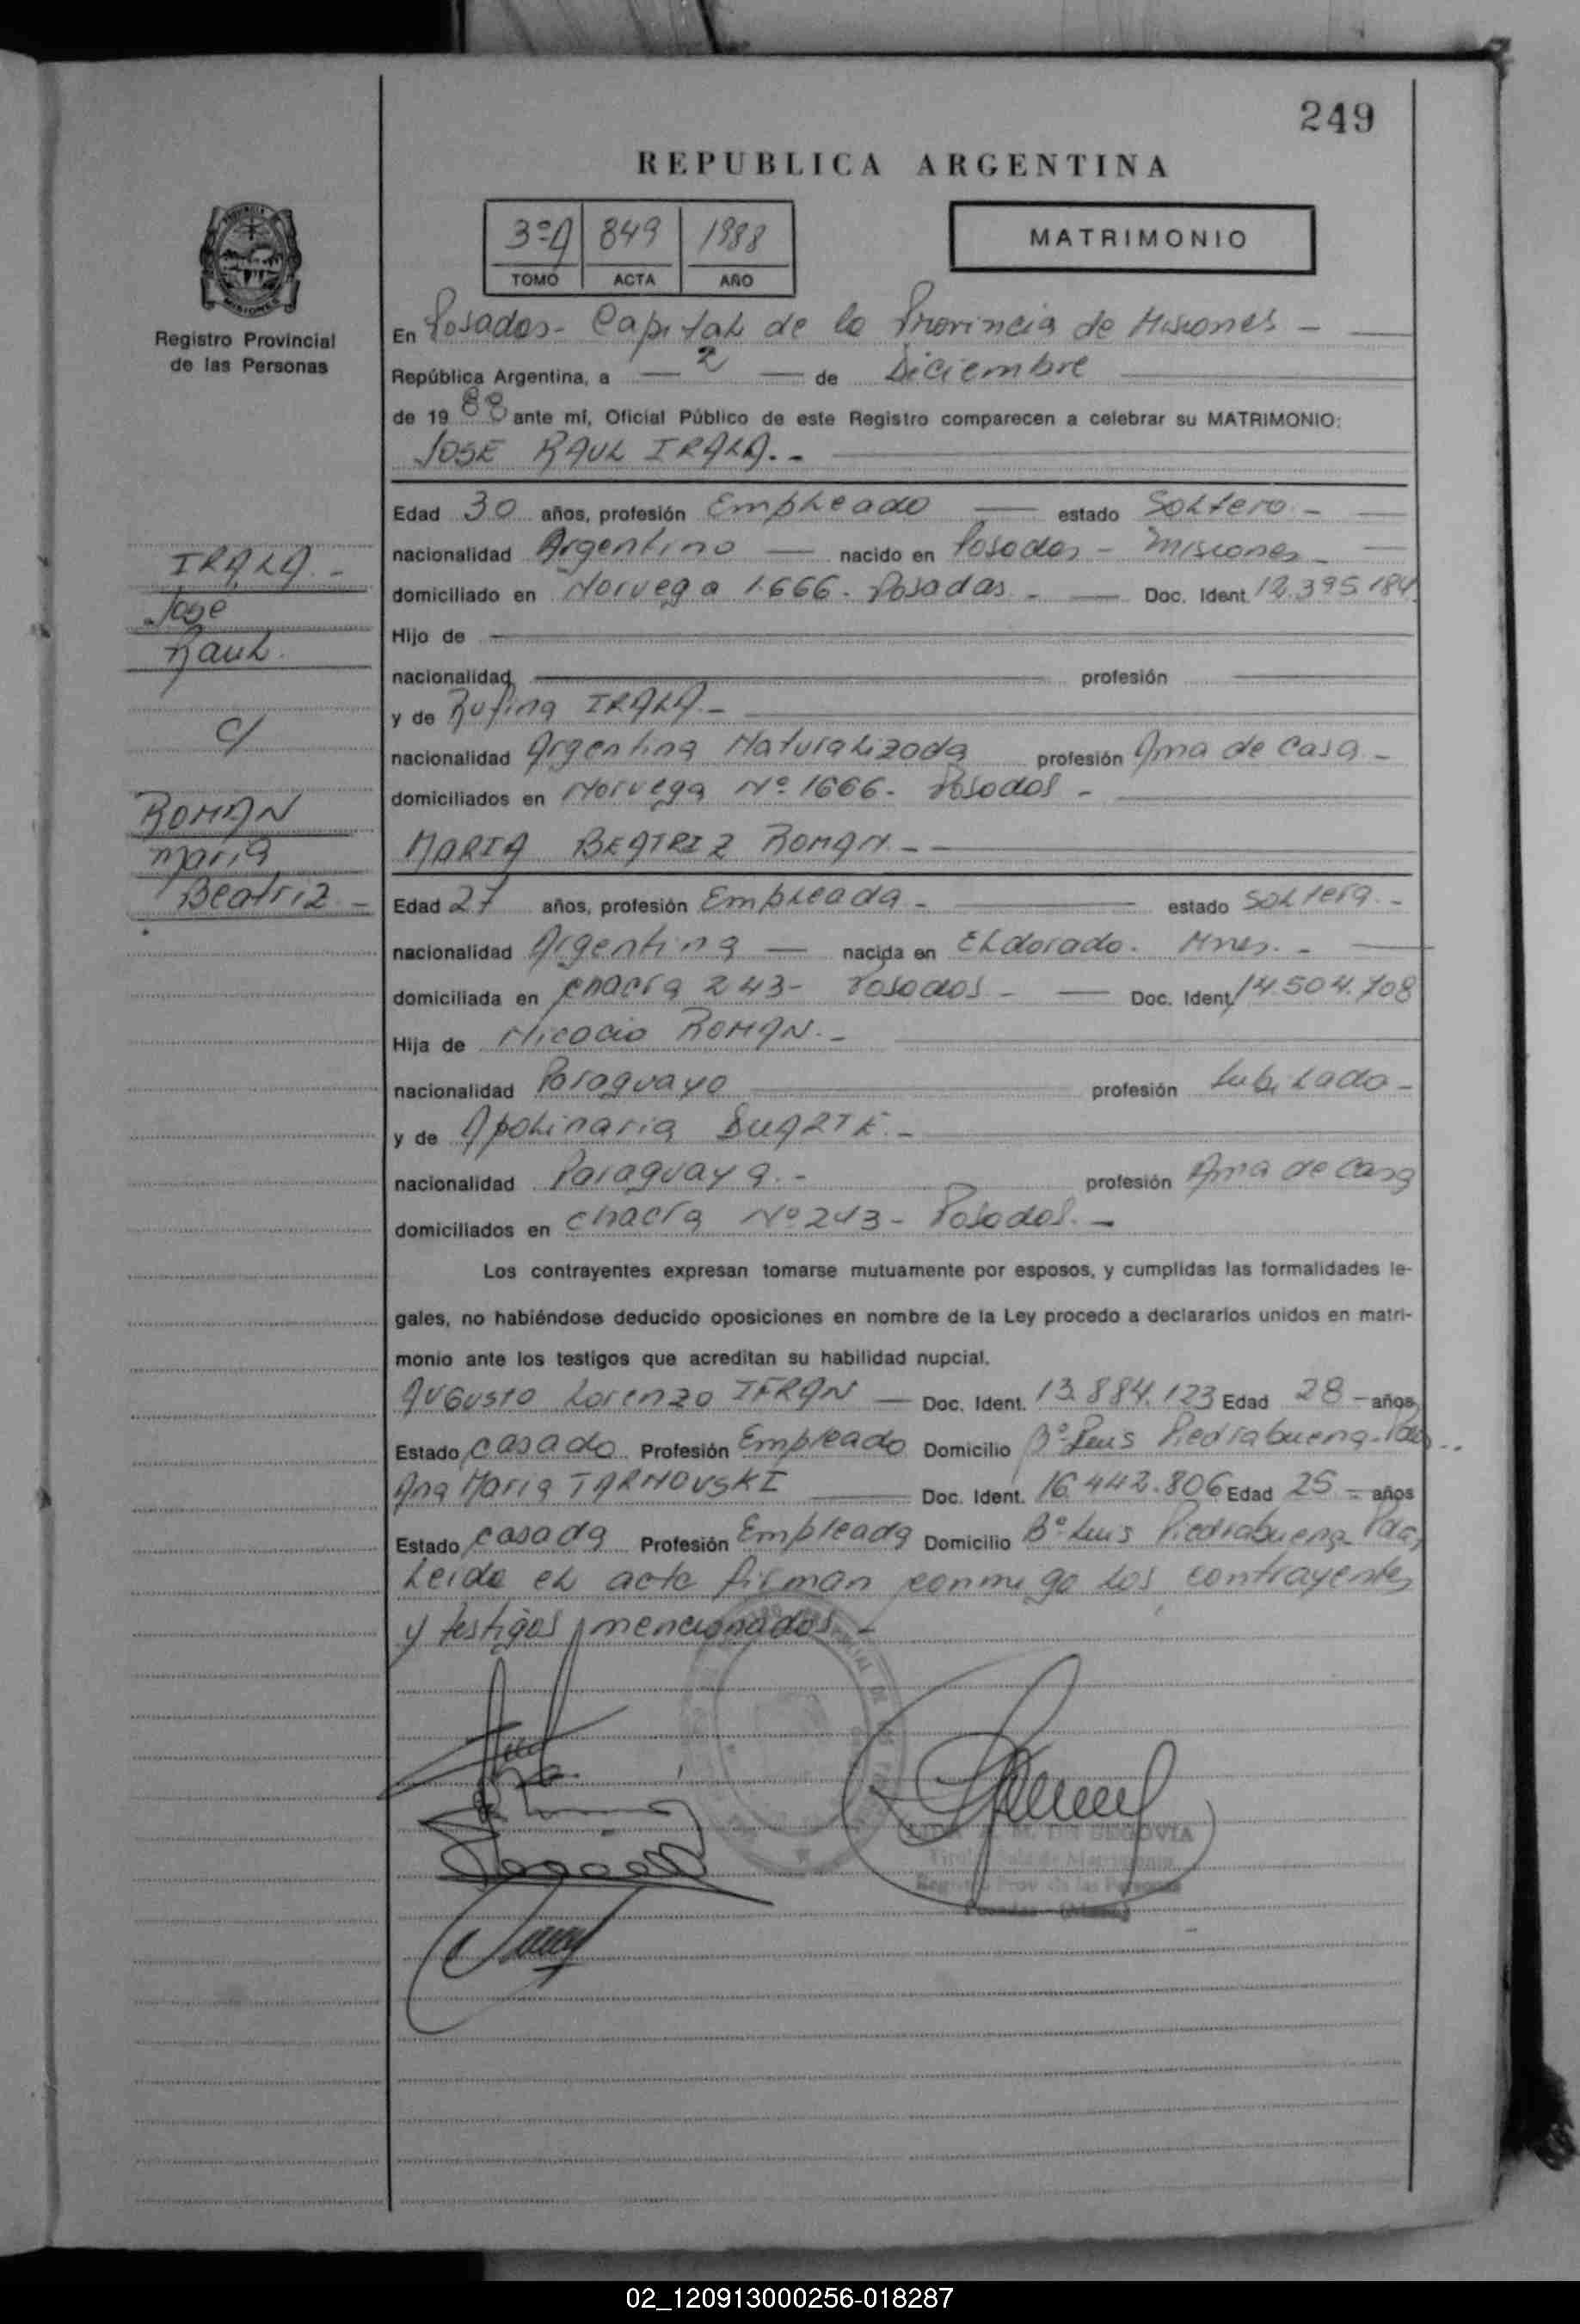 249
REPUBLICA ARGENTINA
3ºA 849 1988
TOMO ACTA AÑO
MATRIMONIO
Registro Provincial
de las Personas
En Posadas- Capital de la Provincia de Misiones -
República Argentina, a — 2 — de Diciembre
de 19 88 ante mí, Oficial Público de este Registro comparecen a celebrar su MATRIMONIO:
JOSE RAUL IRALA.-
Edad 30 años, profesión Empleado — estado Soltero.-
nacionalidad Argentino — nacido en Posadas - Misiones
domiciliado en Noruega 1.666. Posadas - — Doc. Ident. 12.395.184
Hijo de
nacionalidad profesión
y de Rufina IRALA.-
nacionalidad Argentina Naturalizada profesión Ama de Casa -
domiciliados en Noruega Nº 1666- Posadas -
MARIA BEATRIZ ROMAN.-
Edad 27 años, profesión Empleada - estado Soltera.-
nacionalidad Argentina — nacida en Eldorado. Mnes. -
domiciliada en chacra 243- Posadas - — Doc. Ident. 14.504.708
Hija de Nicacio ROMAN.-
nacionalidad Paraguayo profesión Jubilado-
y de Apolinaria DUARTE.-
nacionalidad Paraguaya.- profesión Ama de Casa
domiciliados en chacra Nº 243- Posadas.-
Los contrayentes expresan tomarse mutuamente por esposos, y cumplidas las formalidades le-
gales, no habiéndose deducido oposiciones en nombre de la Ley procedo a declararlos unidos en matri-
monio ante los testigos que acreditan su habilidad nupcial.
Augusto Lorenzo IFRAN — Doc. Ident. 13.884.123 Edad 28 - años
Estado casado Profesión Empleado Domicilio Bº Luis Piedrabuena-Pdas
Ana Maria TARNOVSKI — Doc. Ident. 16.442.806 Edad 25 - años
Estado casada Profesión Empleada Domicilio Bº Luis Piedrabuena Pdas,
Leida el acta firman conmigo los contrayentes
y testigos mencionados.-
IRALA.-
Jose
Raul.
c/
ROMAN
Maria
Beatriz -
DE SEGOVIA
Registro Prov. de las Personas
02_120913000256-018287